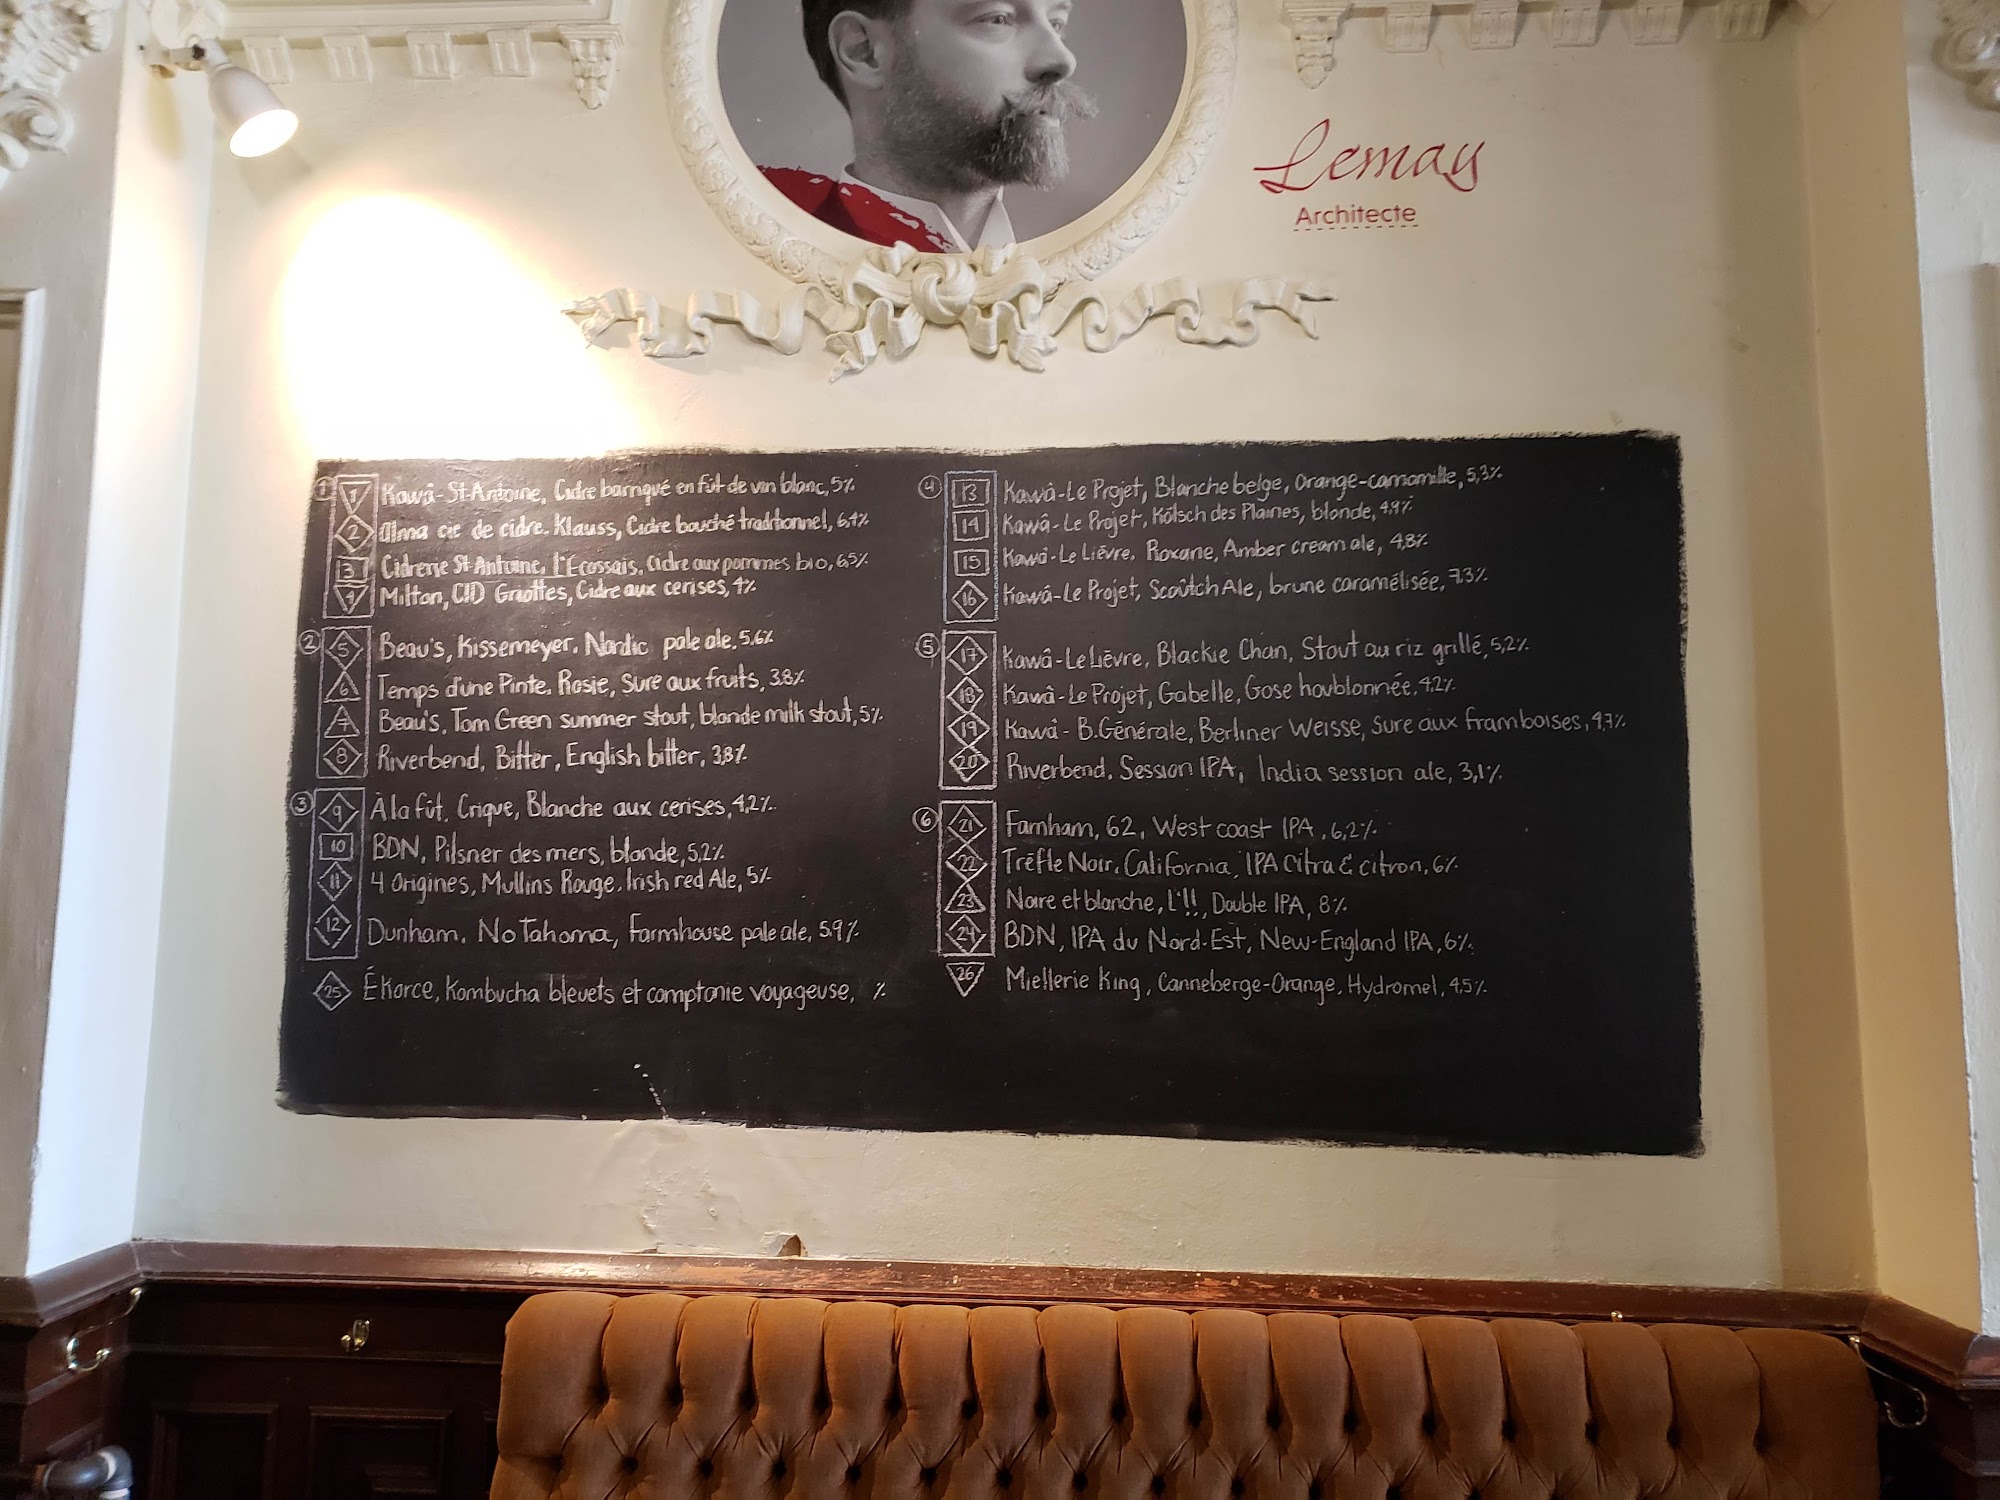 Lemay
Architecte
1
1 Kawâ-St-Antoine, Cidre barriqué en fût de vin blanc, 5%
2 Alma cie de cidre. Klauss, Cidre bouché traditionnel, 6,4%
3 Cidrerie St-Antoine, l'Écossais, Cidre aux pommes bio, 6,5%
4 Milton, CID Griottes, Cidre aux cerises, 4%
2
5 Beau's, Kissemeyer, Nordic pale ale, 5.6%
6 Temps d'une Pinte, Rosie, Sure aux fruits, 3.8%
7 Beau's, Tom Green summer stout, blonde milk stout, 5%
8 Riverbend, Bitter, English bitter, 3,8%
3
9 À la fût, Crique, Blanche aux cerises, 4,2%
10 BDN, Pilsner des mers, blonde, 5,2%
11 4 Origines, Mullins Rouge, Irish red Ale, 5%
12 Dunham, No Tahoma, Farmhouse pale ale, 5.9%
25 Ékorce, Kombucha bleuets et comptonie voyageuse, %
4
13 Kawâ-Le Projet, Blanche belge, Orange-camomille, 5,3%
14 Kawâ-Le Projet, Kölsch des Plaines, blonde, 4,9%
15 Kawâ-Le Lièvre, Roxane, Amber cream ale, 4,8%
16 Kawâ-Le Projet, Scoûtch Ale, brune caramélisée, 7.3%
5
17 Kawâ-Le Lièvre, Blackie Chan, Stout au riz grillé, 5,2%
18 Kawâ-Le Projet, Gabelle, Gose houblonnée, 4,2%
19 Kawâ-B.Générale, Berliner Weisse, Sure aux framboises, 4,7%
20 Riverbend, Session IPA, India session ale, 3,1%
6
21 Farnham, 62, West coast IPA, 6,2%
22 Trèfle Noir, California, IPA Citra & citron, 6%
23 Noire et blanche, L'!!, Double IPA, 8%
24 BDN, IPA du Nord-Est, New-England IPA, 6%
26 Miellerie King, Canneberge-Orange, Hydromel, 4,5%